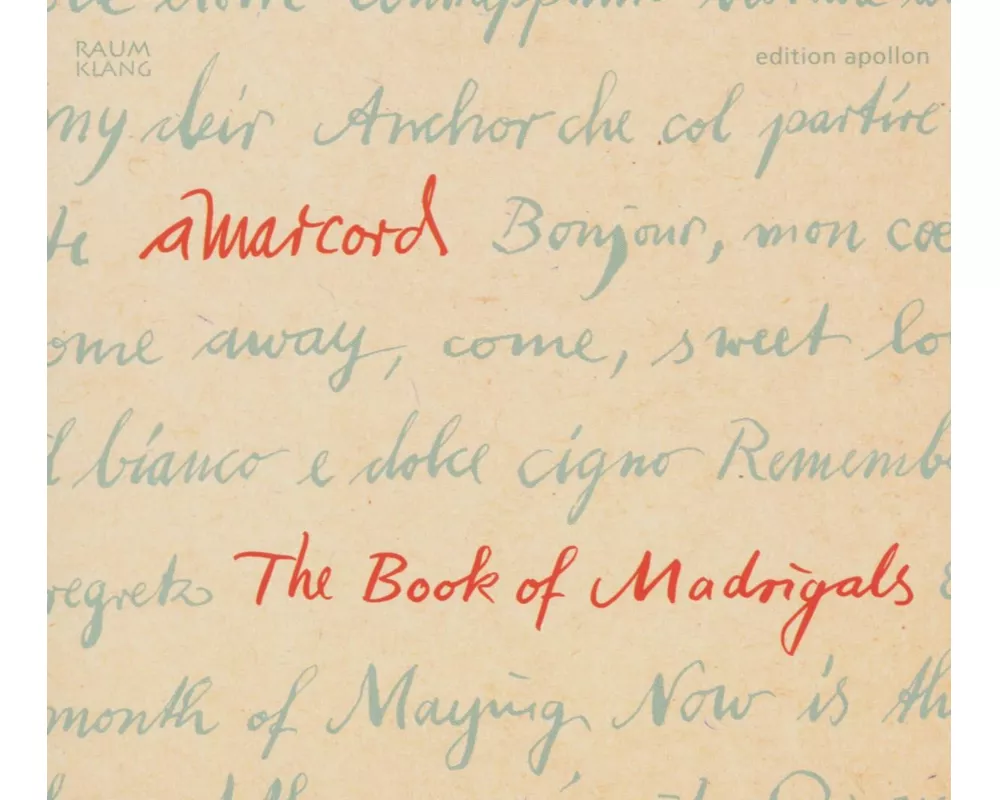 RAUM
KLANG
edition apollon
my deir Anchor che col partire
amarcord Bonjour, mon
away, come, sweet
bianco e dolce cigno
regretz The Book of Madrigals
month of Maying Now is